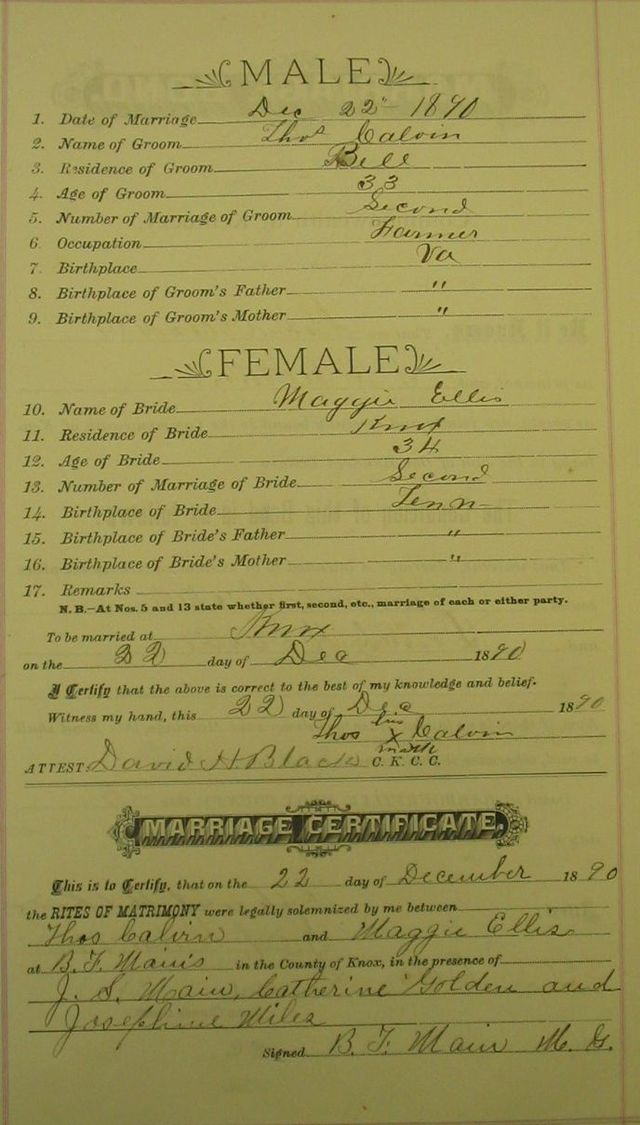 MALE
1. Date of Marriage Dec 22" 1890
2. Name of Groom Thos Calvin
3. Residence of Groom Bell
4. Age of Groom 33
5. Number of Marriage of Groom Second
6. Occupation Farmer
7. Birthplace Va
8. Birthplace of Groom's Father "
9. Birthplace of Groom's Mother "
FEMALE
10. Name of Bride Maggie Ellis
11. Residence of Bride Knox
12. Age of Bride 34
13. Number of Marriage of Bride Second
14. Birthplace of Bride Tenn
15. Birthplace of Bride's Father "
16. Birthplace of Bride's Mother "
17. Remarks
N. B.—At Nos. 5 and 13 state whether first, second, etc., marriage of each or either party.
To be married at Knox
on the 22 day of Dec 1890
I Certify that the above is correct to the best of my knowledge and belief.
Witness my hand, this 22 day of Dec 1890
Thos his x mark Calvin
ATTEST: David H Black C. K. C. C.
MARRIAGE CERTIFICATE.
This is to Certify, that on the 22 day of December 1890
the RITES OF MATRIMONY were legally solemnized by me between
Thos Calvin and Maggie Ellis
at B. F. Main's in the County of Knox, in the presence of
J. S. Main, Catherine Golden and
Josephine Miles
Signed B. F. Main M. G.